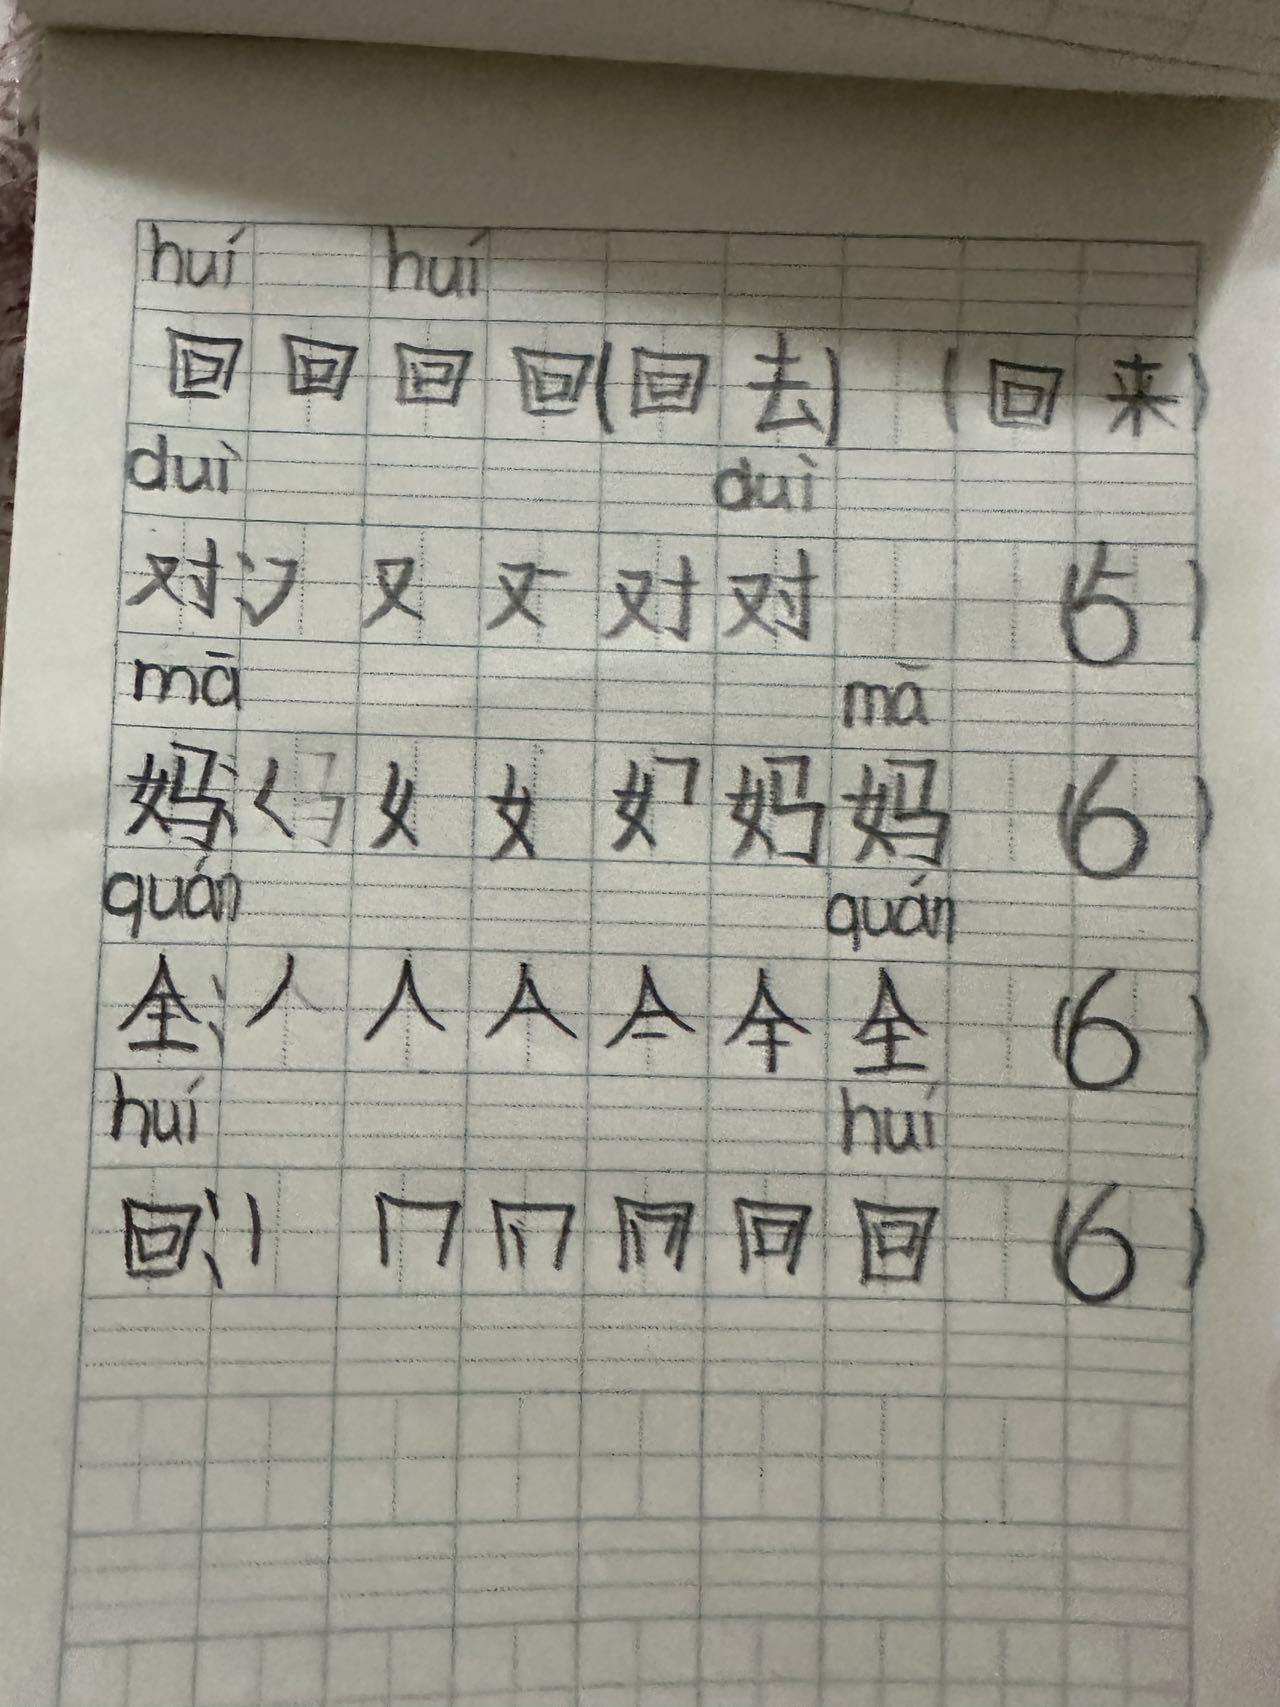 huí huí
回 回 回 回 (回 去) (回 来)
duì duì
对: フ 又 又一 对 对 (5)
mā mā
妈: く 女 女 女㇕ 妈 妈 (6)
quán quán
全: 丿 人 亼 仝 全 (6)
huí huí
回: 丨 冂 回 回 (6)